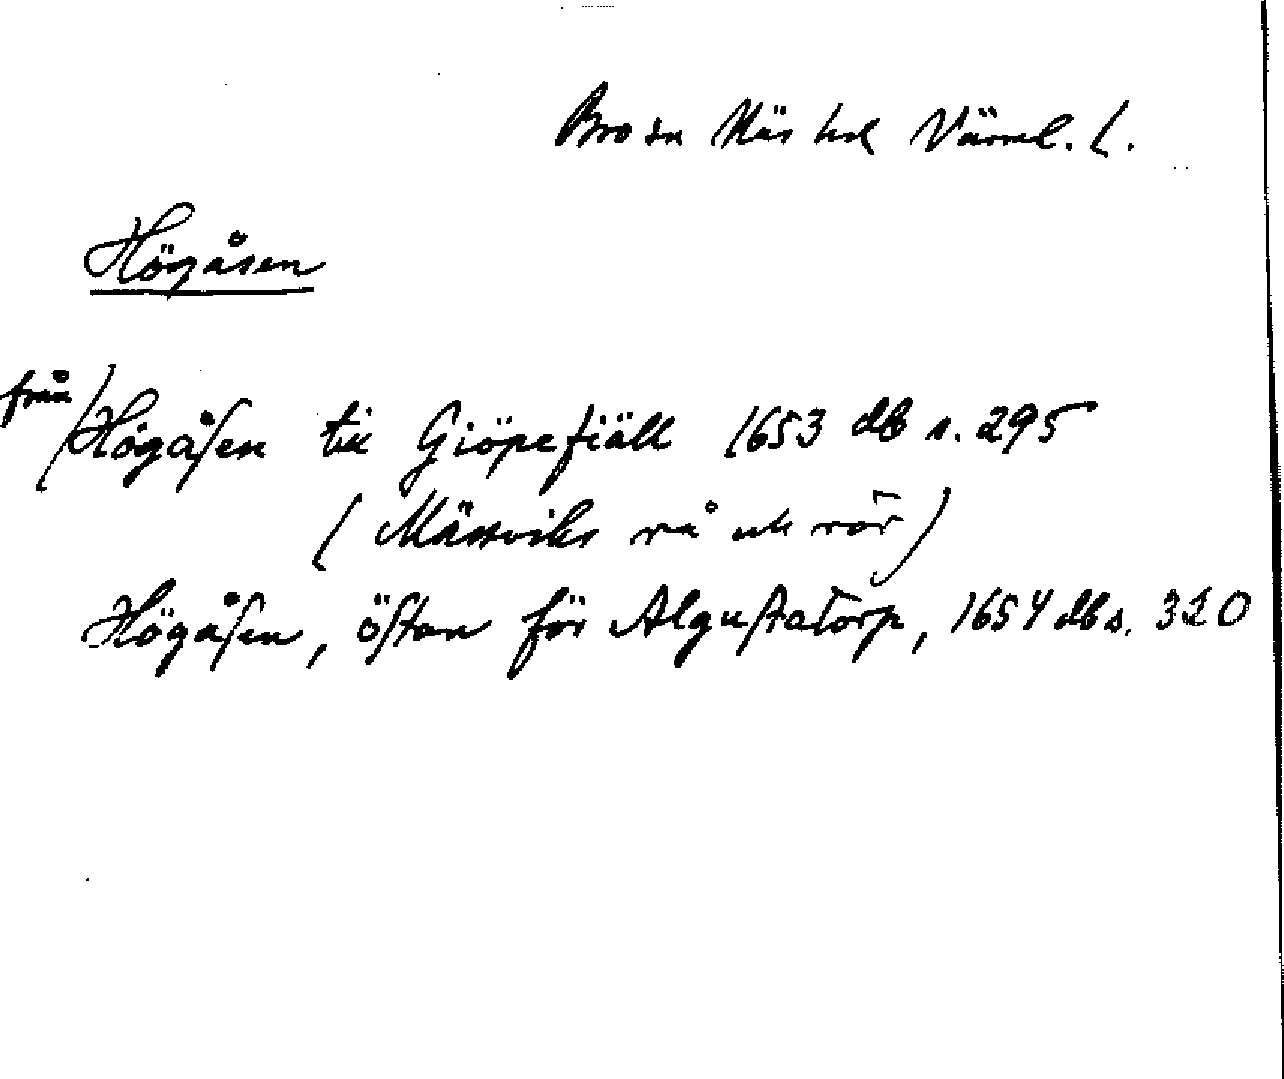 Bro sn Näs hd Värml. l.
Högåsen
från/Högåsen til Giöpefiäll 1653 db s. 295
(Mässviks rå och rör)
Högåsen, östan för Algustatorp, 1654 db s. 320